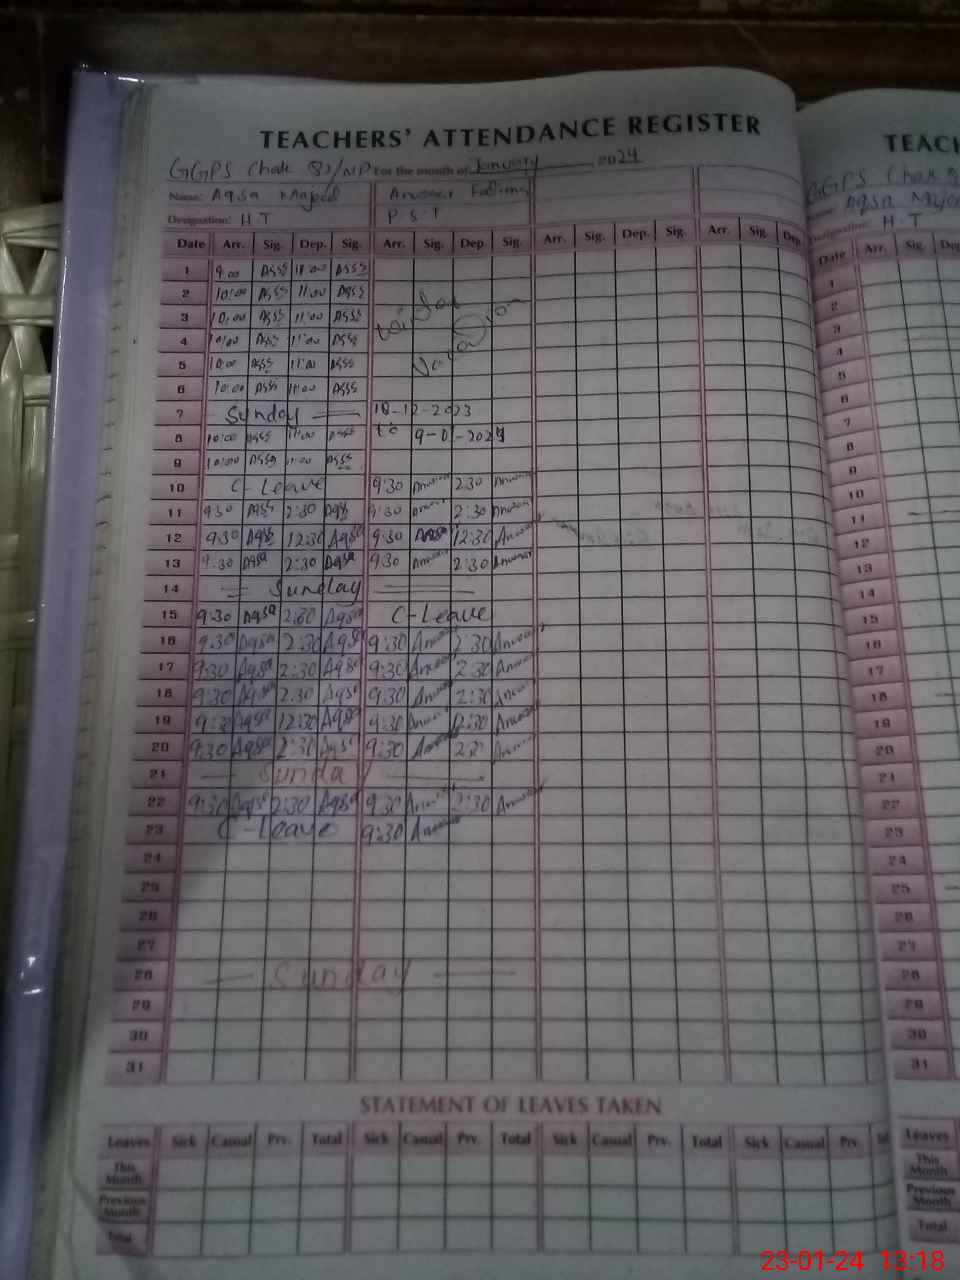 TEACHERS' ATTENDANCE REGISTER
GGPS Chak 82/NP For the month of January 2024
Name: Aqsa Majeed Anwaar Fatima
Designation: H T P S T
Date Arr. Sig. Dep. Sig. Arr. Sig. Dep. Sig. Arr. Sig. Dep. Sig. Arr. Sig. Dep.
1 9:00 Aqsa 11:00 Aqsa
2 10:00 Aqsa 11:00 Aqsa
3 10:00 Aqsa 11:00 Aqsa Winter
4 10:00 Aqsa 11:00 Aqsa Vacation
5 10:00 Aqsa 11:00 Aqsa
6 10:00 Aqsa 11:00 Aqsa
7 Sunday 18-12-2023
8 10:00 Aqsa 11:00 Aqsa to 9-01-2024
9 10:00 Aqsa 11:00 Aqsa
10 C-Leave 9:30 Anwaar 2:30 Anwaar
11 9:30 Aqsa 2:30 Aqsa 9:30 Anwaar 2:30 Anwaar
12 9:30 Aqsa 12:30 Aqsa 9:30 12:30 Anwaar
13 9:30 Aqsa 2:30 Aqsa 9:30 Anwaar 2:30 Anwaar
14 Sunday
15 9:30 Aqsa 2:30 Aqsa C-Leave
16 9:30 Aqsa 2:30 Aqsa 9:30 Anwaar 2:30 Anwaar
17 9:30 Aqsa 2:30 Aqsa 9:30 Anwaar 2:30 Anwaar
18 9:30 Aqsa 2:30 Aqsa 9:30 Anwaar 2:30 Anwaar
19 9:30 Aqsa 12:30 Aqsa 9:30 Anwaar 12:30 Anwaar
20 9:30 Aqsa 2:30 Aqsa 9:30 Anwaar 2:30 Anwaar
21 Sunday
22 9:30 Aqsa 2:30 Aqsa 9:30 Anwaar 2:30 Anwaar
23 C-Leave 9:30 Anwaar
24
25
26
27
28 Sunday
29
30
31
STATEMENT OF LEAVES TAKEN
Leaves Sick Casual Prv. Total Sick Casual Prv. Total Sick Casual Prv. Total Sick Casual Prv.
This Month
Previous Month
Total
TEACH
GGPS Chak 8
Aqsa Maje
Designation: H.T
Date Arr. Sig. Dep
1
2
3
4
5
6
7
8
9
10
11
12
13
14
15
16
17
18
19
20
21
22
23
24
25
26
27
28
29
30
31
Leaves
This Month
Previous Month
Total
23-01-24 13:18